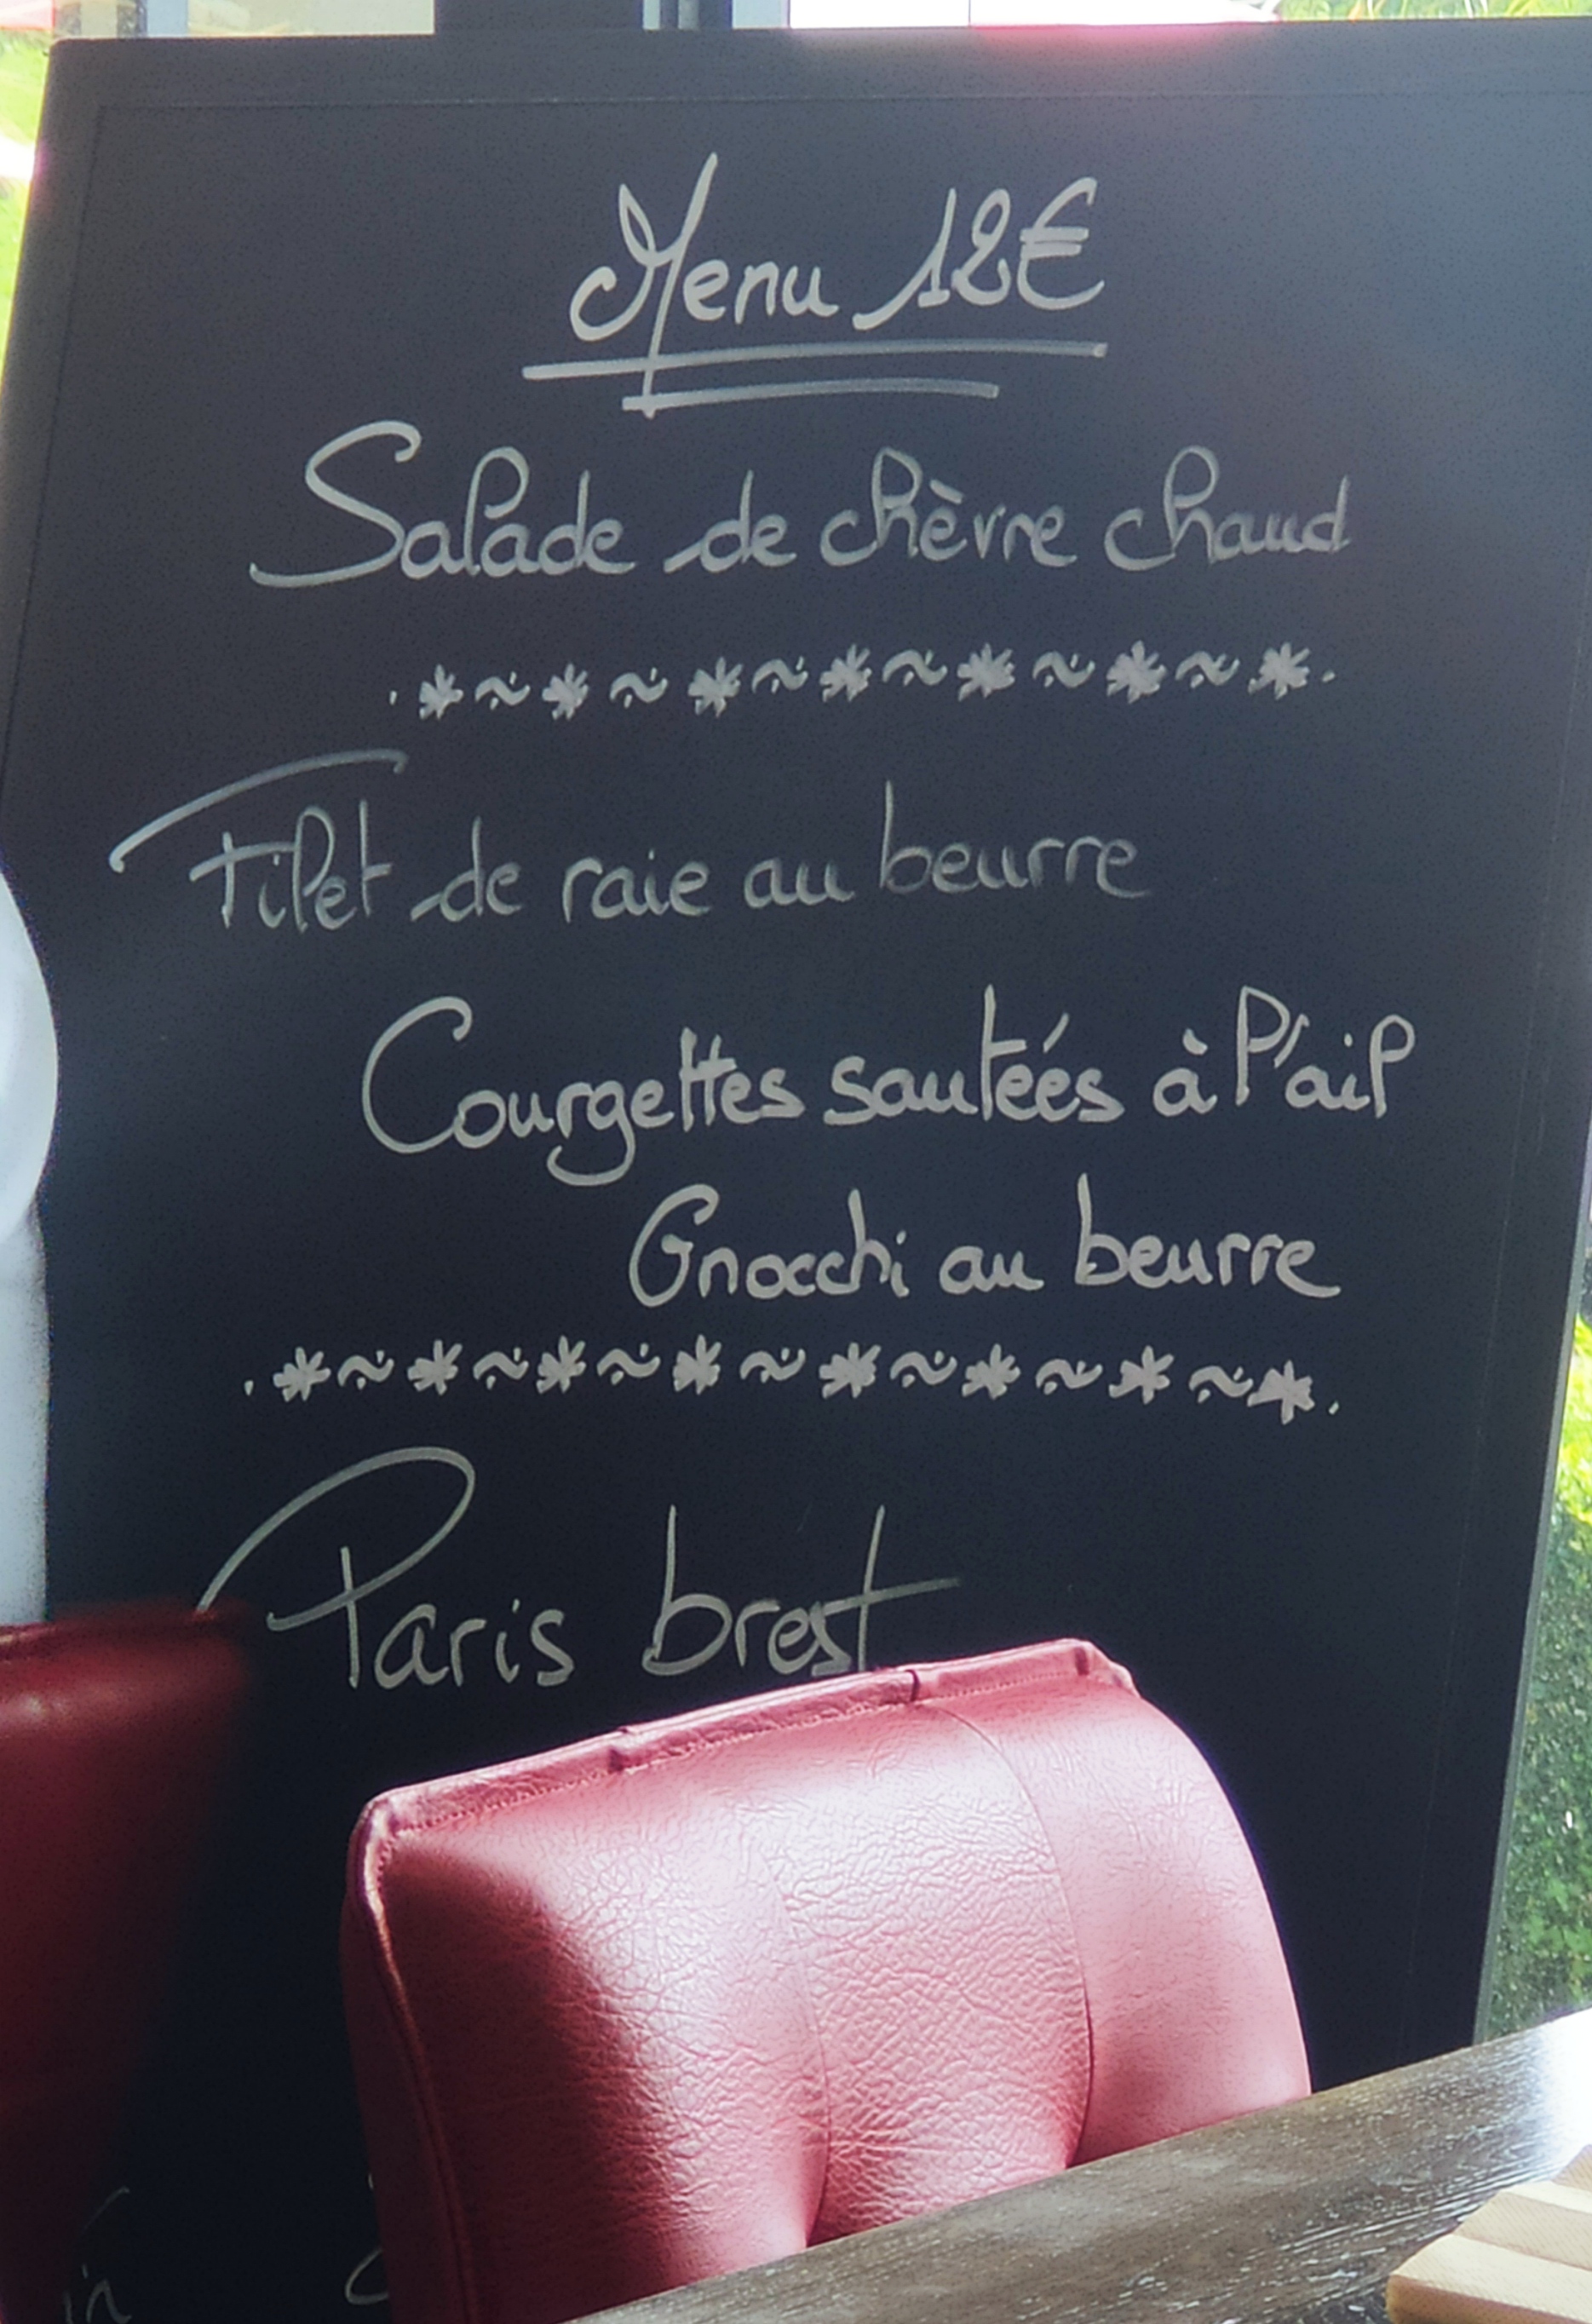 Menu 12€
Salade de chèvre chaud
Filet de raie au beurre
Courgettes sautéés à l'ail
Gnocchi au beurre
Paris brest